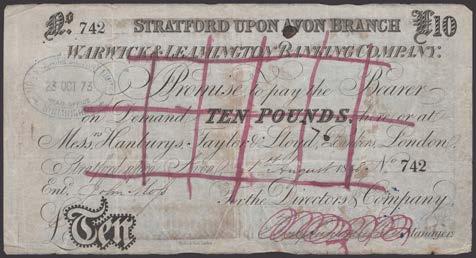 No. 742 STRATFORD UPON AVON BRANCH £10
WARWICK & LEAMINGTON BANKING COMPANY.
23 OCT 73
I Promise to pay the Bearer
on Demand TEN POUNDS, here or at
Messrs Hanburys, Taylor & Lloyd, Bankers, London
Stratford upon Avon August No 742
Entd.
For the Directors & Company
£ Ten
Manager